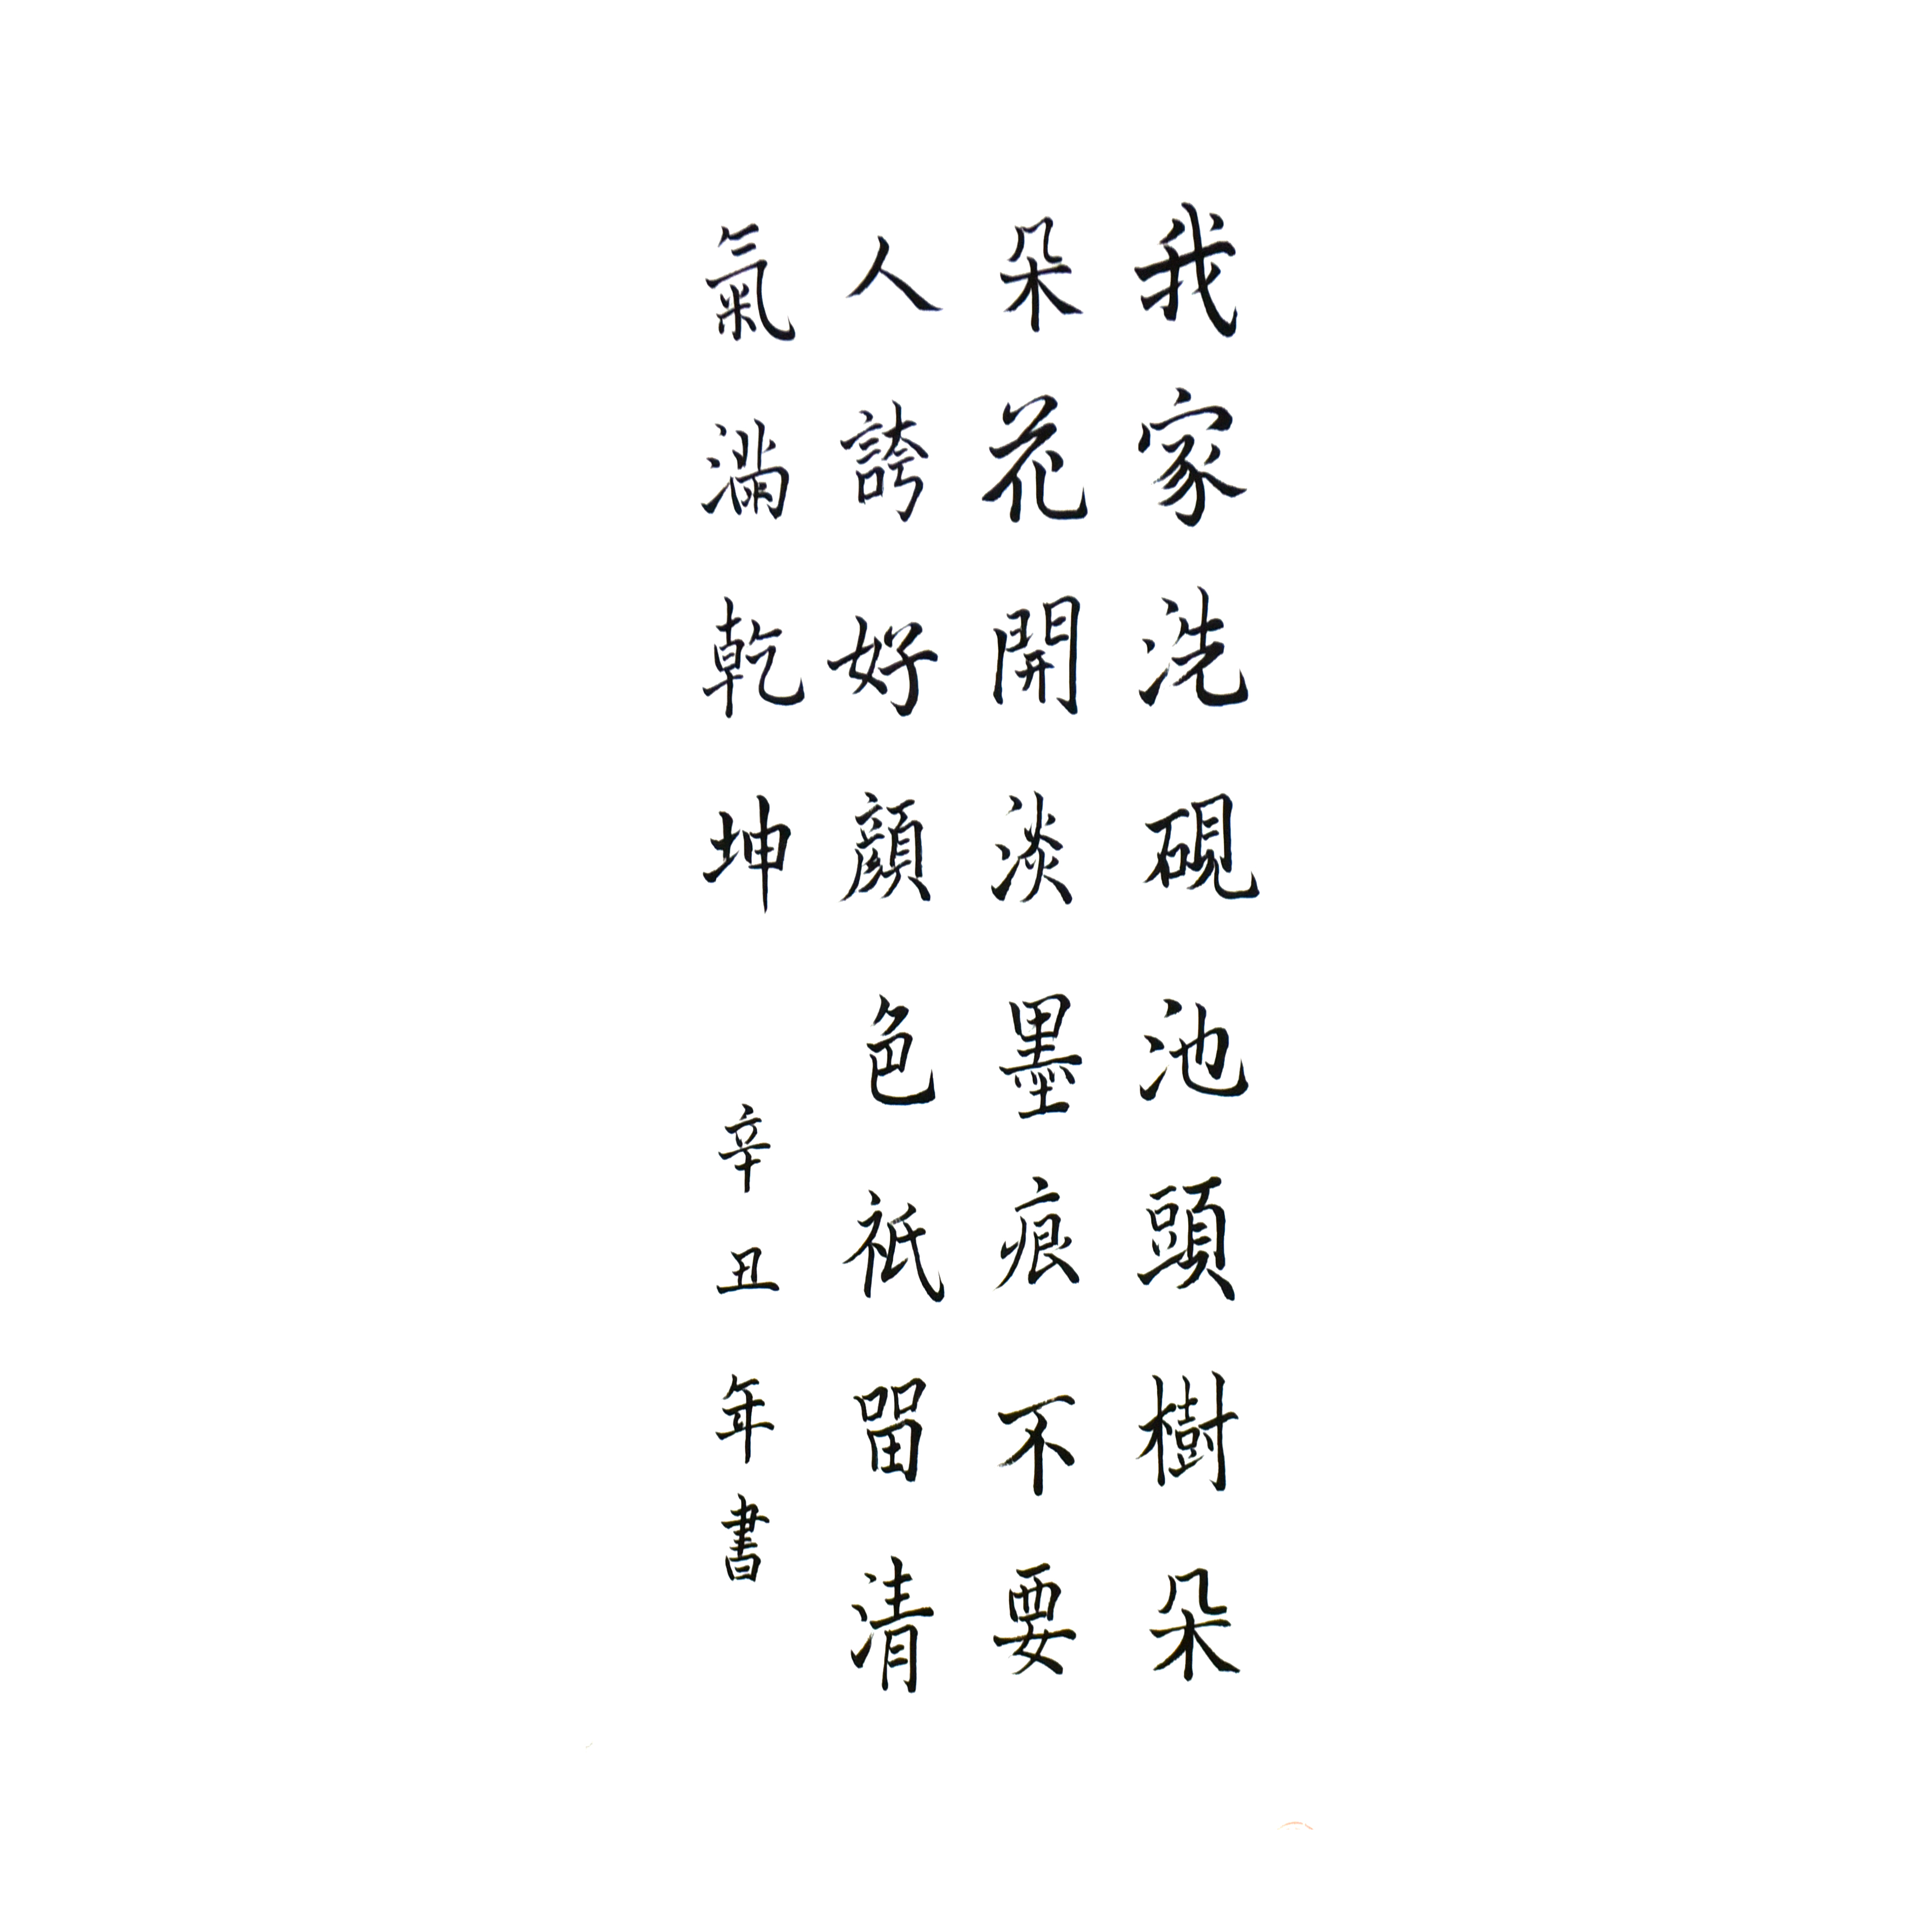 我家洗硯池頭樹朵
朵花開淡墨痕不要
人誇好顏色祇留清
氣滿乾坤
辛丑年書